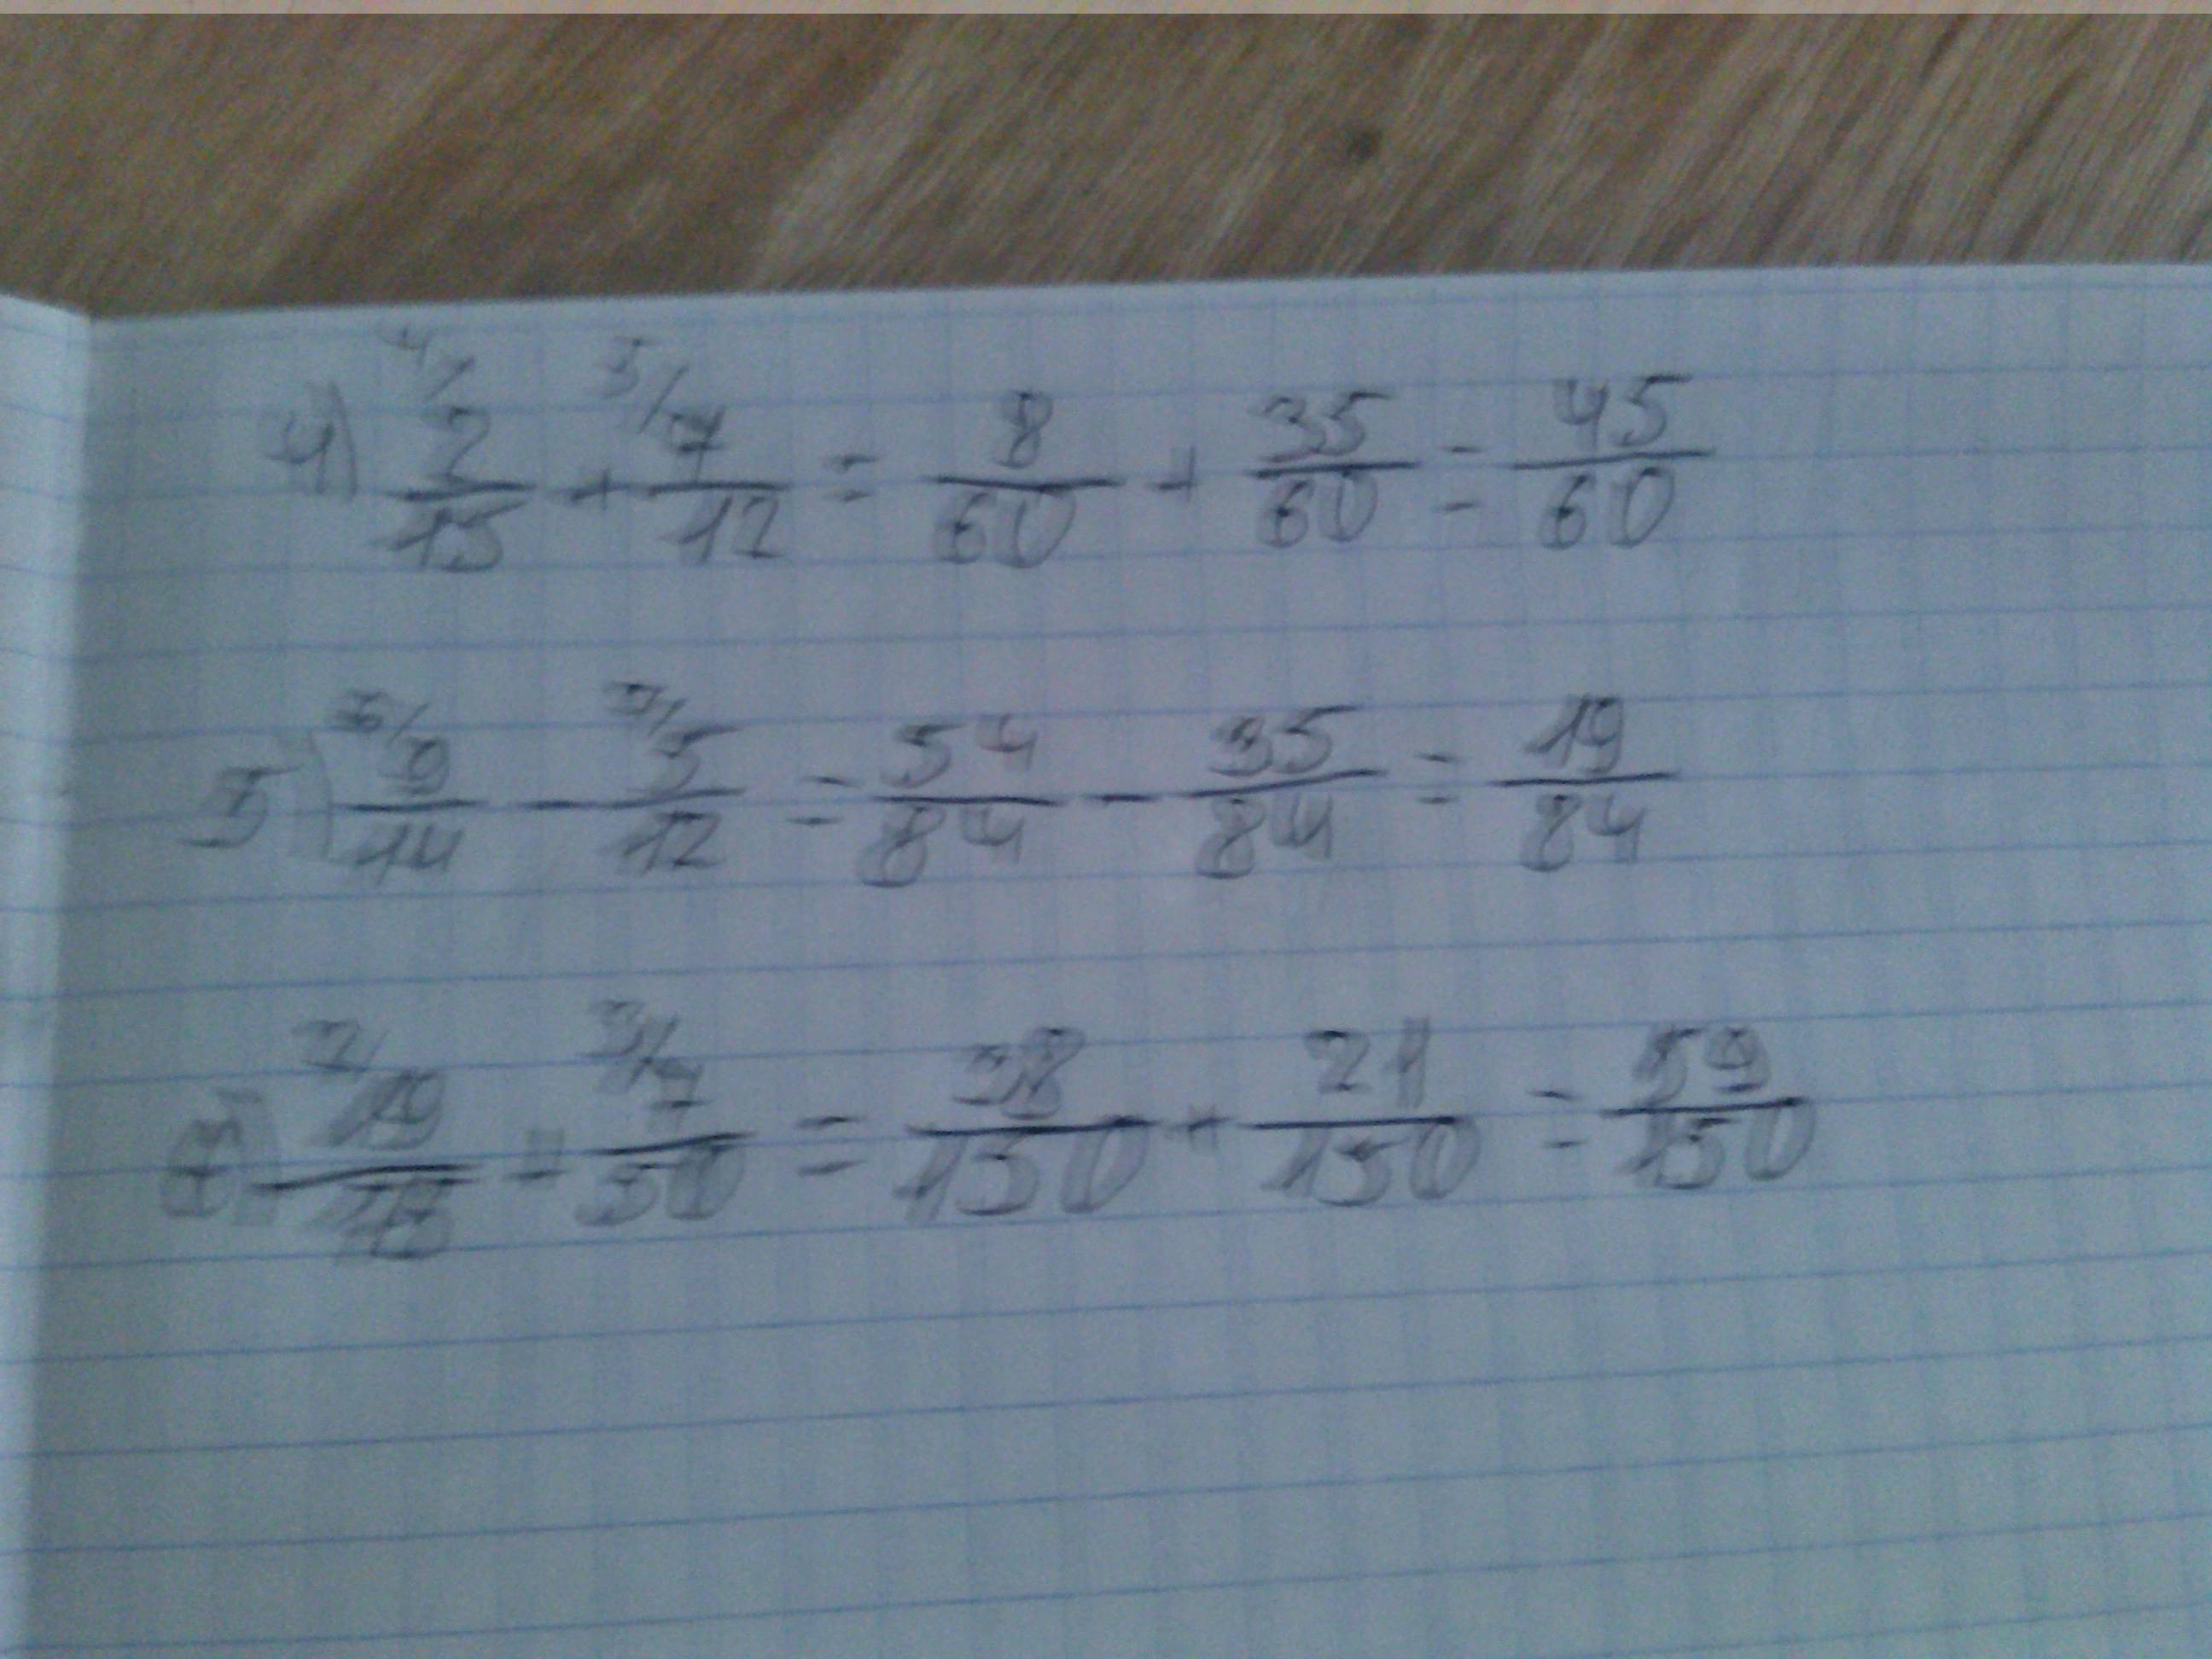 4) 4/ 2/15 + 5/ 7/12 = 8/60 + 35/60 = 45/60
5) 6/ 9/14 - 7/ 5/12 = 54/84 - 35/84 = 19/84
2/ 19/ + 3/ 7/50 = 38/150 + 21/150 = 59/150